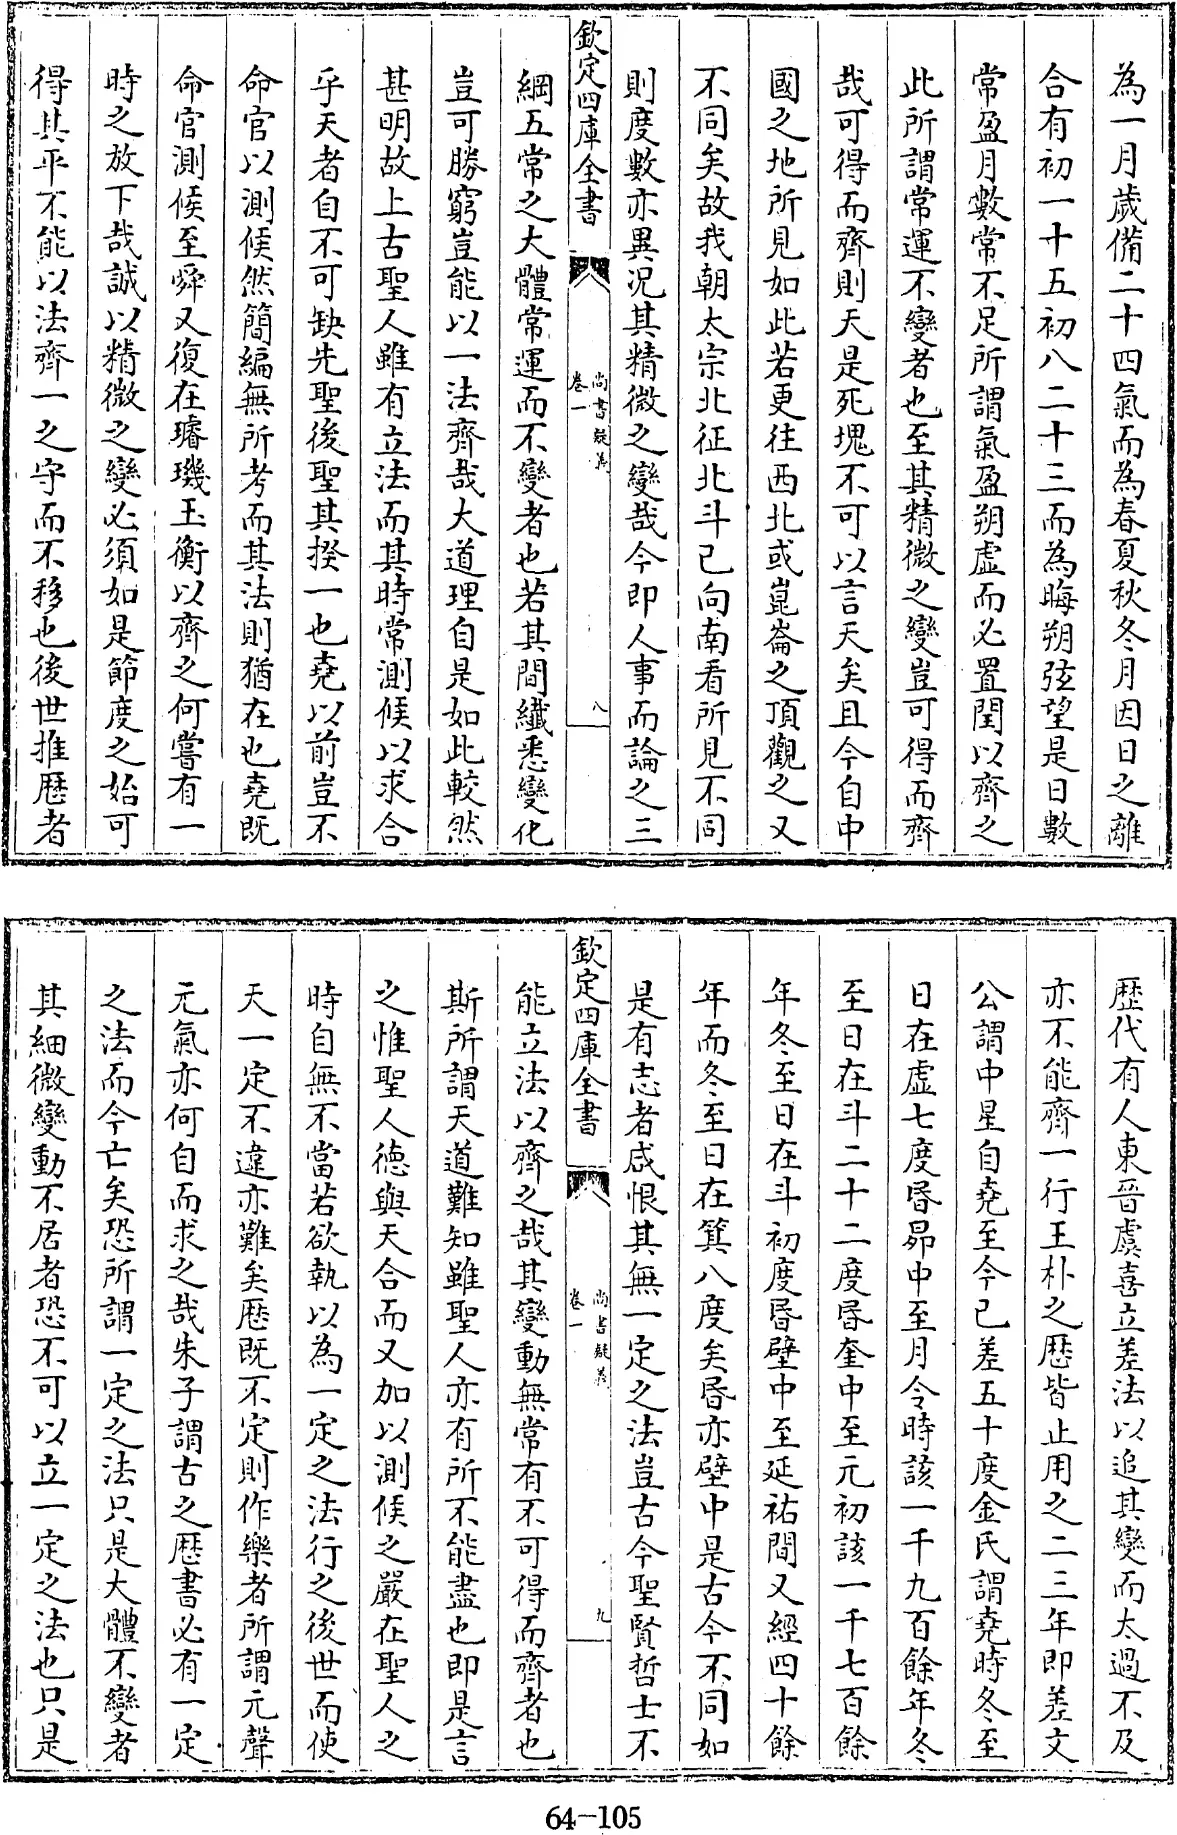 為一月歲備二十四氣而為春夏秋冬月因日之離
合有初一十五初八二十三而為晦朔弦望是日數
常盈月數常不足所謂氣盈朔虛而必置閏以齊之
此所謂常運不變者也至其精微之變豈可得而齊
哉可得而齊則天是死塊不可以言天矣且今自中
國之地所見如此若更往西北或崑崙之頂觀之又
不同矣故我朝太宗北征北斗已向南看所見不同
則度數亦異況其精微之變哉今即人事而論之三
欽定四庫全書
尚書疑義
卷一
八
綱五常之大體常運而不變者也若其間纖悉變化
豈可勝窮豈能以一法齊哉大道理自是如此較然
甚明故上古聖人雖有立法而其時常測候以求合
乎天者自不可缺先聖後聖其揆一也堯以前豈不
命官以測候然簡編無所考而其法則猶在也堯既
命官測候至舜又復在璿璣玉衡以齊之何嘗有一
時之放下哉誠以精微之變必須如是節度之始可
得其平不能以法齊一之守而不移也後世推歷者
歷代有人東晉虞喜立差法以追其變而太過不及
亦不能齊一行王朴之歷皆止用之二三年即差文
公謂中星自堯至今已差五十度金氏謂堯時冬至
日在虛七度昏昴中至月令時該一千九百餘年冬
至日在斗二十二度昏奎中至元初該一千七百餘
年冬至日在斗初度昏壁中至延祐間又經四十餘
年而冬至日在箕八度矣昏亦壁中是古今不同如
是有志者咸恨其無一定之法豈古今聖賢哲士不
欽定四庫全書
尚書疑義
卷一
九
能立法以齊之哉其變動無常有不可得而齊者也
斯所謂天道難知雖聖人亦有所不能盡也即是言
之惟聖人德與天合而又加以測候之嚴在聖人之
時自無不當若欲執以為一定之法行之後世而使
天一定不違亦難矣歷既不定則作樂者所謂元聲
元氣亦何自而求之哉朱子謂古之歷書必有一定
之法而今亡矣恐所謂一定之法只是大體不變者
其細微變動不居者恐不可以立一定之法也只是
64-105